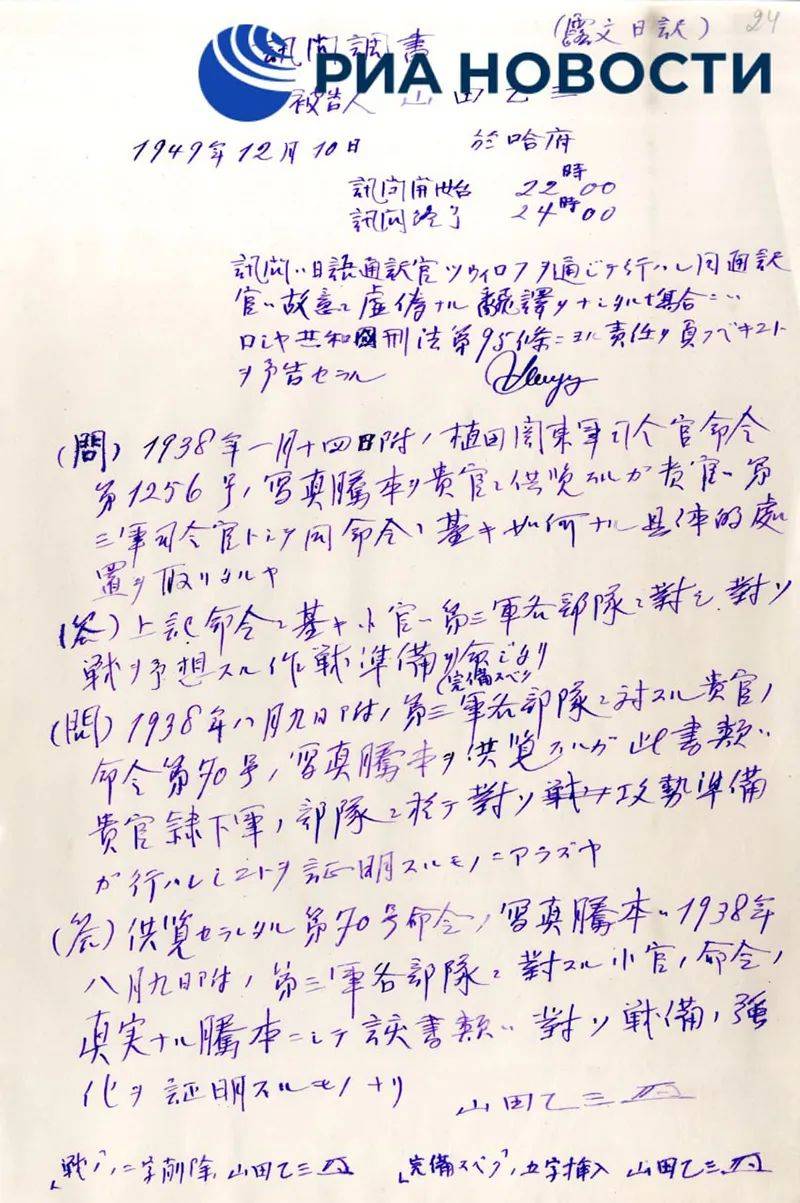 24
(露文日訳)
訊問調書
РИА НОВОСТИ
被告人 山田乙三
1949年12月10日 於哈府
訊問開始 22時00
訊問終了 24時00
訊問ハ日語通訳官ツウィロフヲ通ジテ行ハレ同通訳
官ハ故意ニ虚偽ナル飜譯ヲナシタル場合ニハ
ロシヤ共和国刑法第95條ニヨル責任ヲ負フベキコト
ヲ予告セラル
(問) 1938年一月十四日附ノ植田関東軍司令官命令
第1256号ノ写真謄本ヲ貴官ニ供覧スルガ貴官ハ第
三軍司令官トシテ同命令ニ基キ如何ナル具体的処
置ヲ取リタルヤ
(答) 上記命令ニ基キ小官ハ第三軍各部隊ニ対シ対ソ
戦ヲ予想スル作戦準備ヲ命ジタリ
(完備スベク
(問) 1938年八月九日附ノ第三軍各部隊ニ対スル貴官ノ
命令第70号ノ写真謄本ヲ供覧スルガ此書類ハ
貴官隷下軍ノ部隊ニ於テ對ソ戦 攻勢準備
ガ行ハレシコトヲ証明スルモノニアラズヤ
(答) 供覧セラレタル第70号命令ノ写真謄本ハ1938年
八月九日附ノ第三軍各部隊ニ對スル小官ノ命令ノ
真実ナル謄本ニシテ該書類ハ對ソ戦備ノ強
化ヲ証明スルモノナリ
山田乙三
「戦ノ」ノ二字削除 山田乙三
「完備スベク」ノ五字挿入 山田乙三